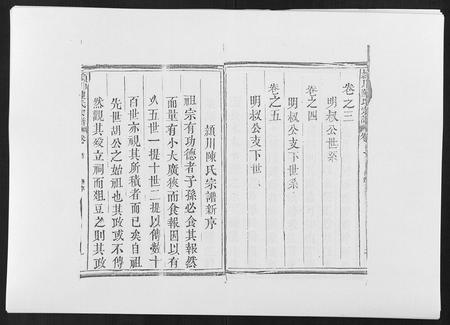 卷之三
明叔公世系
卷之四
明叔公支下世系
卷之五
明叔公支下世
潁川陳氏宗譜新序
祖宗有功德者子孫必食其報然
而量有小大廣狹而食報因以有
五世一提十世二提以傳數十
百世亦視其所積者而已矣自祖
先世胡公之始祖也其政或不傳
然觀其殁立祠而俎豆之則其政